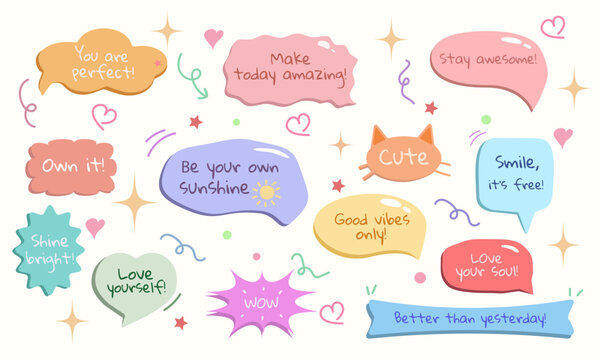 You are
perfect!
Make
today amazing!
Stay awesome!
Own it!
Be your own
sunshine
Cute
Smile,
it's free!
Good vibes
only!
Shine
bright!
Love
yourself!
WOW
Love
your soul!
Better than yesterday!